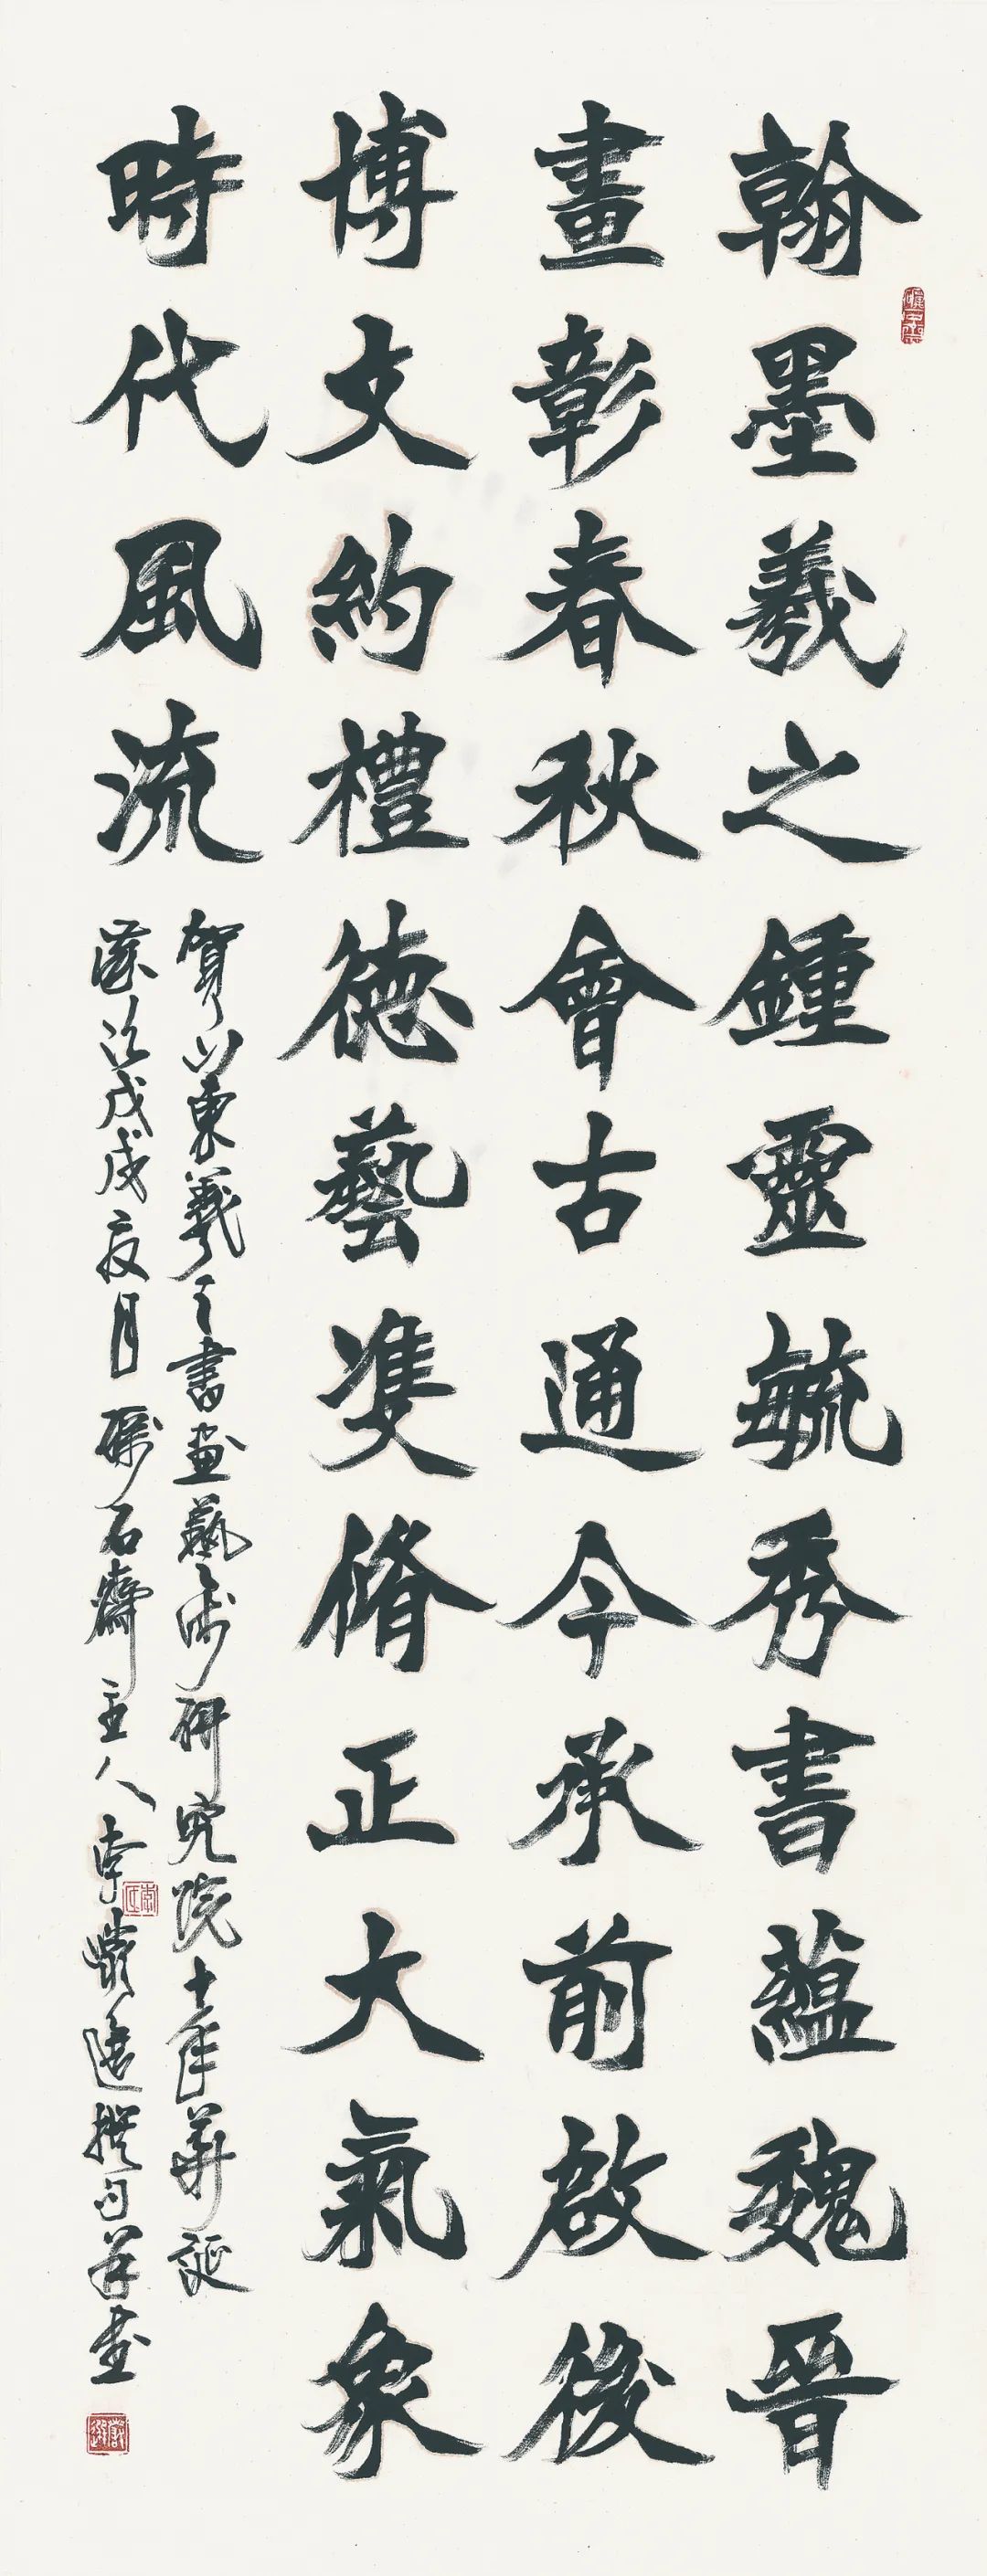 翰墨羲之鍾靈毓秀書蘊魏晉
畫彰春秋會古通今承前啟後
博文約禮德藝雙脩正大氣象
時代風流
賀山東羲之書畫藝術研究院十年華誕
歲次戊戌夏月 石齋主人李 遠撰句并書